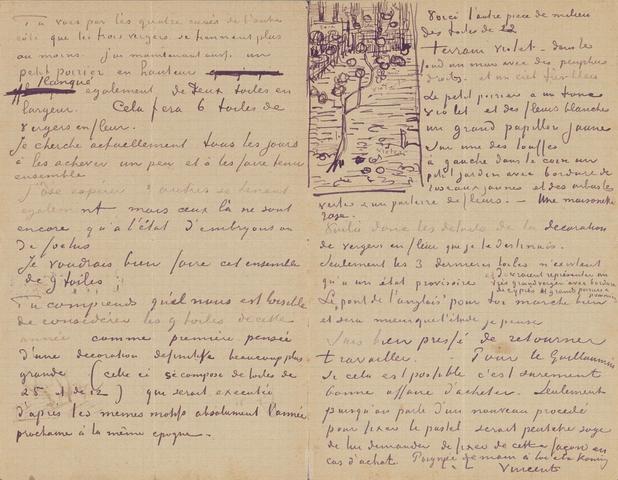 Tu vois par les quatre croquis de l'autre
côté que les trois vergers se tiennent plus
ou moins. j'ai maintenant aussi un
petit poirier en hauteur
flanqué également de deux toiles en
largeur. Cela fera 6 toiles de
vergers en fleur.
Je cherche actuellement tous les jours
à les achever un peu et à les faire tenir
ensemble
J'ose espérer 3 autres se tenant
également mais ceux là ne sont
encore qu'à l'état d'embryons ou
de foetus
Je voudrais bien faire cet ensemble
de 9 toiles ;
Tu comprends qu'il nous est loisible
de considérer les 9 toiles de cette
année comme première pensée
d'une decoration definitive beaucoup plus
grande (celle ci se compose de toiles de
25 et de 12) qui serait executée
d'après les memes motifs absolument l'année
prochaine à la même epoque.-
Voici l'autre piece de milieu
des toiles de 12
terrain violet - dans le
fond un mur avec des peupliers
droits. et un ciel très bleu
Le petit poirier a un tronc
violet et des fleurs blanches
un grand papillon jaune
sur une des touffes
à gauche dans le coin un
petit jardin avec bordure de
roseaux jaunes et des arbustes
verts et un parterre de fleurs. - Une maisonette
rose.
Voilà donc les details de la decoration
de vergers en fleur que je te destinais.
Seulement les 3 dernières toiles n'existent
qu'à un état provisoire et devraient représenter un
très grand verger avec bordure
de cyprès et grands poiriers et pommiers
Le pont de l'anglois pour toi marche bien
et sera mieux que l'étude je pense
Suis bien pressé de retourner
travailler. - Pour le Guillaumin
si cela est possible c'est surement
bonne affaire d'acheter. Seulement
puisqu'on parle d'un nouveau procédé
pour fixer le pastel serait peutetre sage
de lui demander de fixer de cette façon en
cas d'achat. Poignée de main à toi et à Koning
t. à t. Vincent